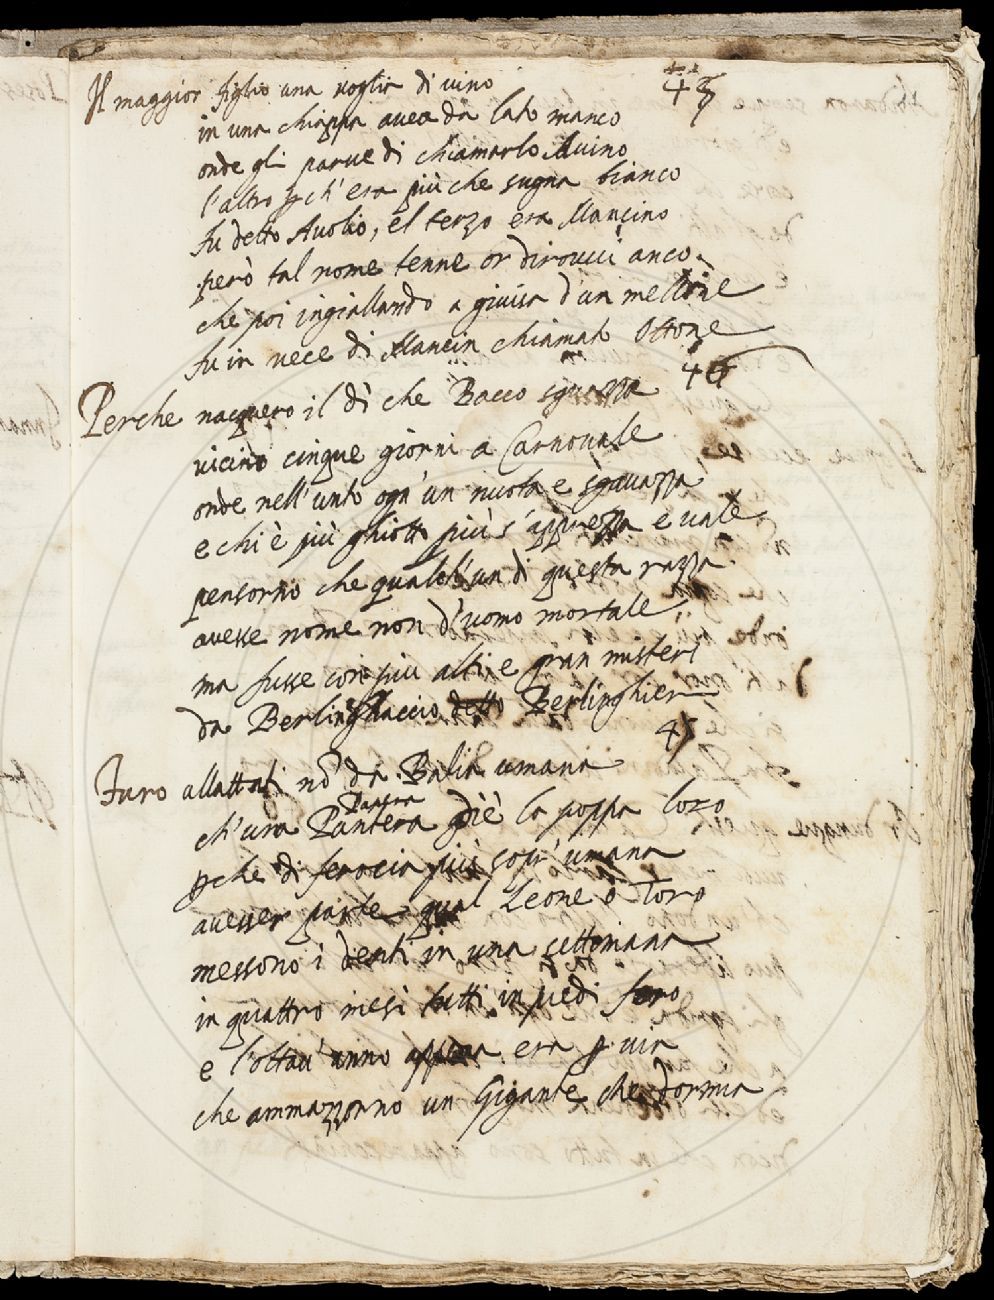 43
Il maggior figlio una voglia di vino
in una chiappa avea da lato manco
onde gli parve di chiamarlo Avino
l'altro pch'era più che sugna bianco
fu detto Avolio, el terzo era Mancino
però tal nome tenne or dirovvi anco
che poi ingiallando a guisa d'un mellone
fu in vece di Mancin chiamato Ottone
44
Perche nacquero il dì che Bacco sguazza
vicino cinque giorni a Carnovale
onde nell'unto ogn'un nuota e sguazza
e chi è più ghiotto più s'apprezza e vale
pensorno che qualch'un di questa razza
avesse nome non d'uomo mortale
ma fusse con più alti e gran misteri
da Berlinghaccio detto Berlinghieri
45
Furo allattati nõ da Balia umana
Pantera
ch'una Pantera diè la poppa loro
pche di ferocia più sovr'umana
avesser parte qual Leone o Toro
messono i denti in una settimana
in quattro mesi tutti in piedi foro
e l'ottav'anno appena era p via
che ammazzorno un Gigante che dormia